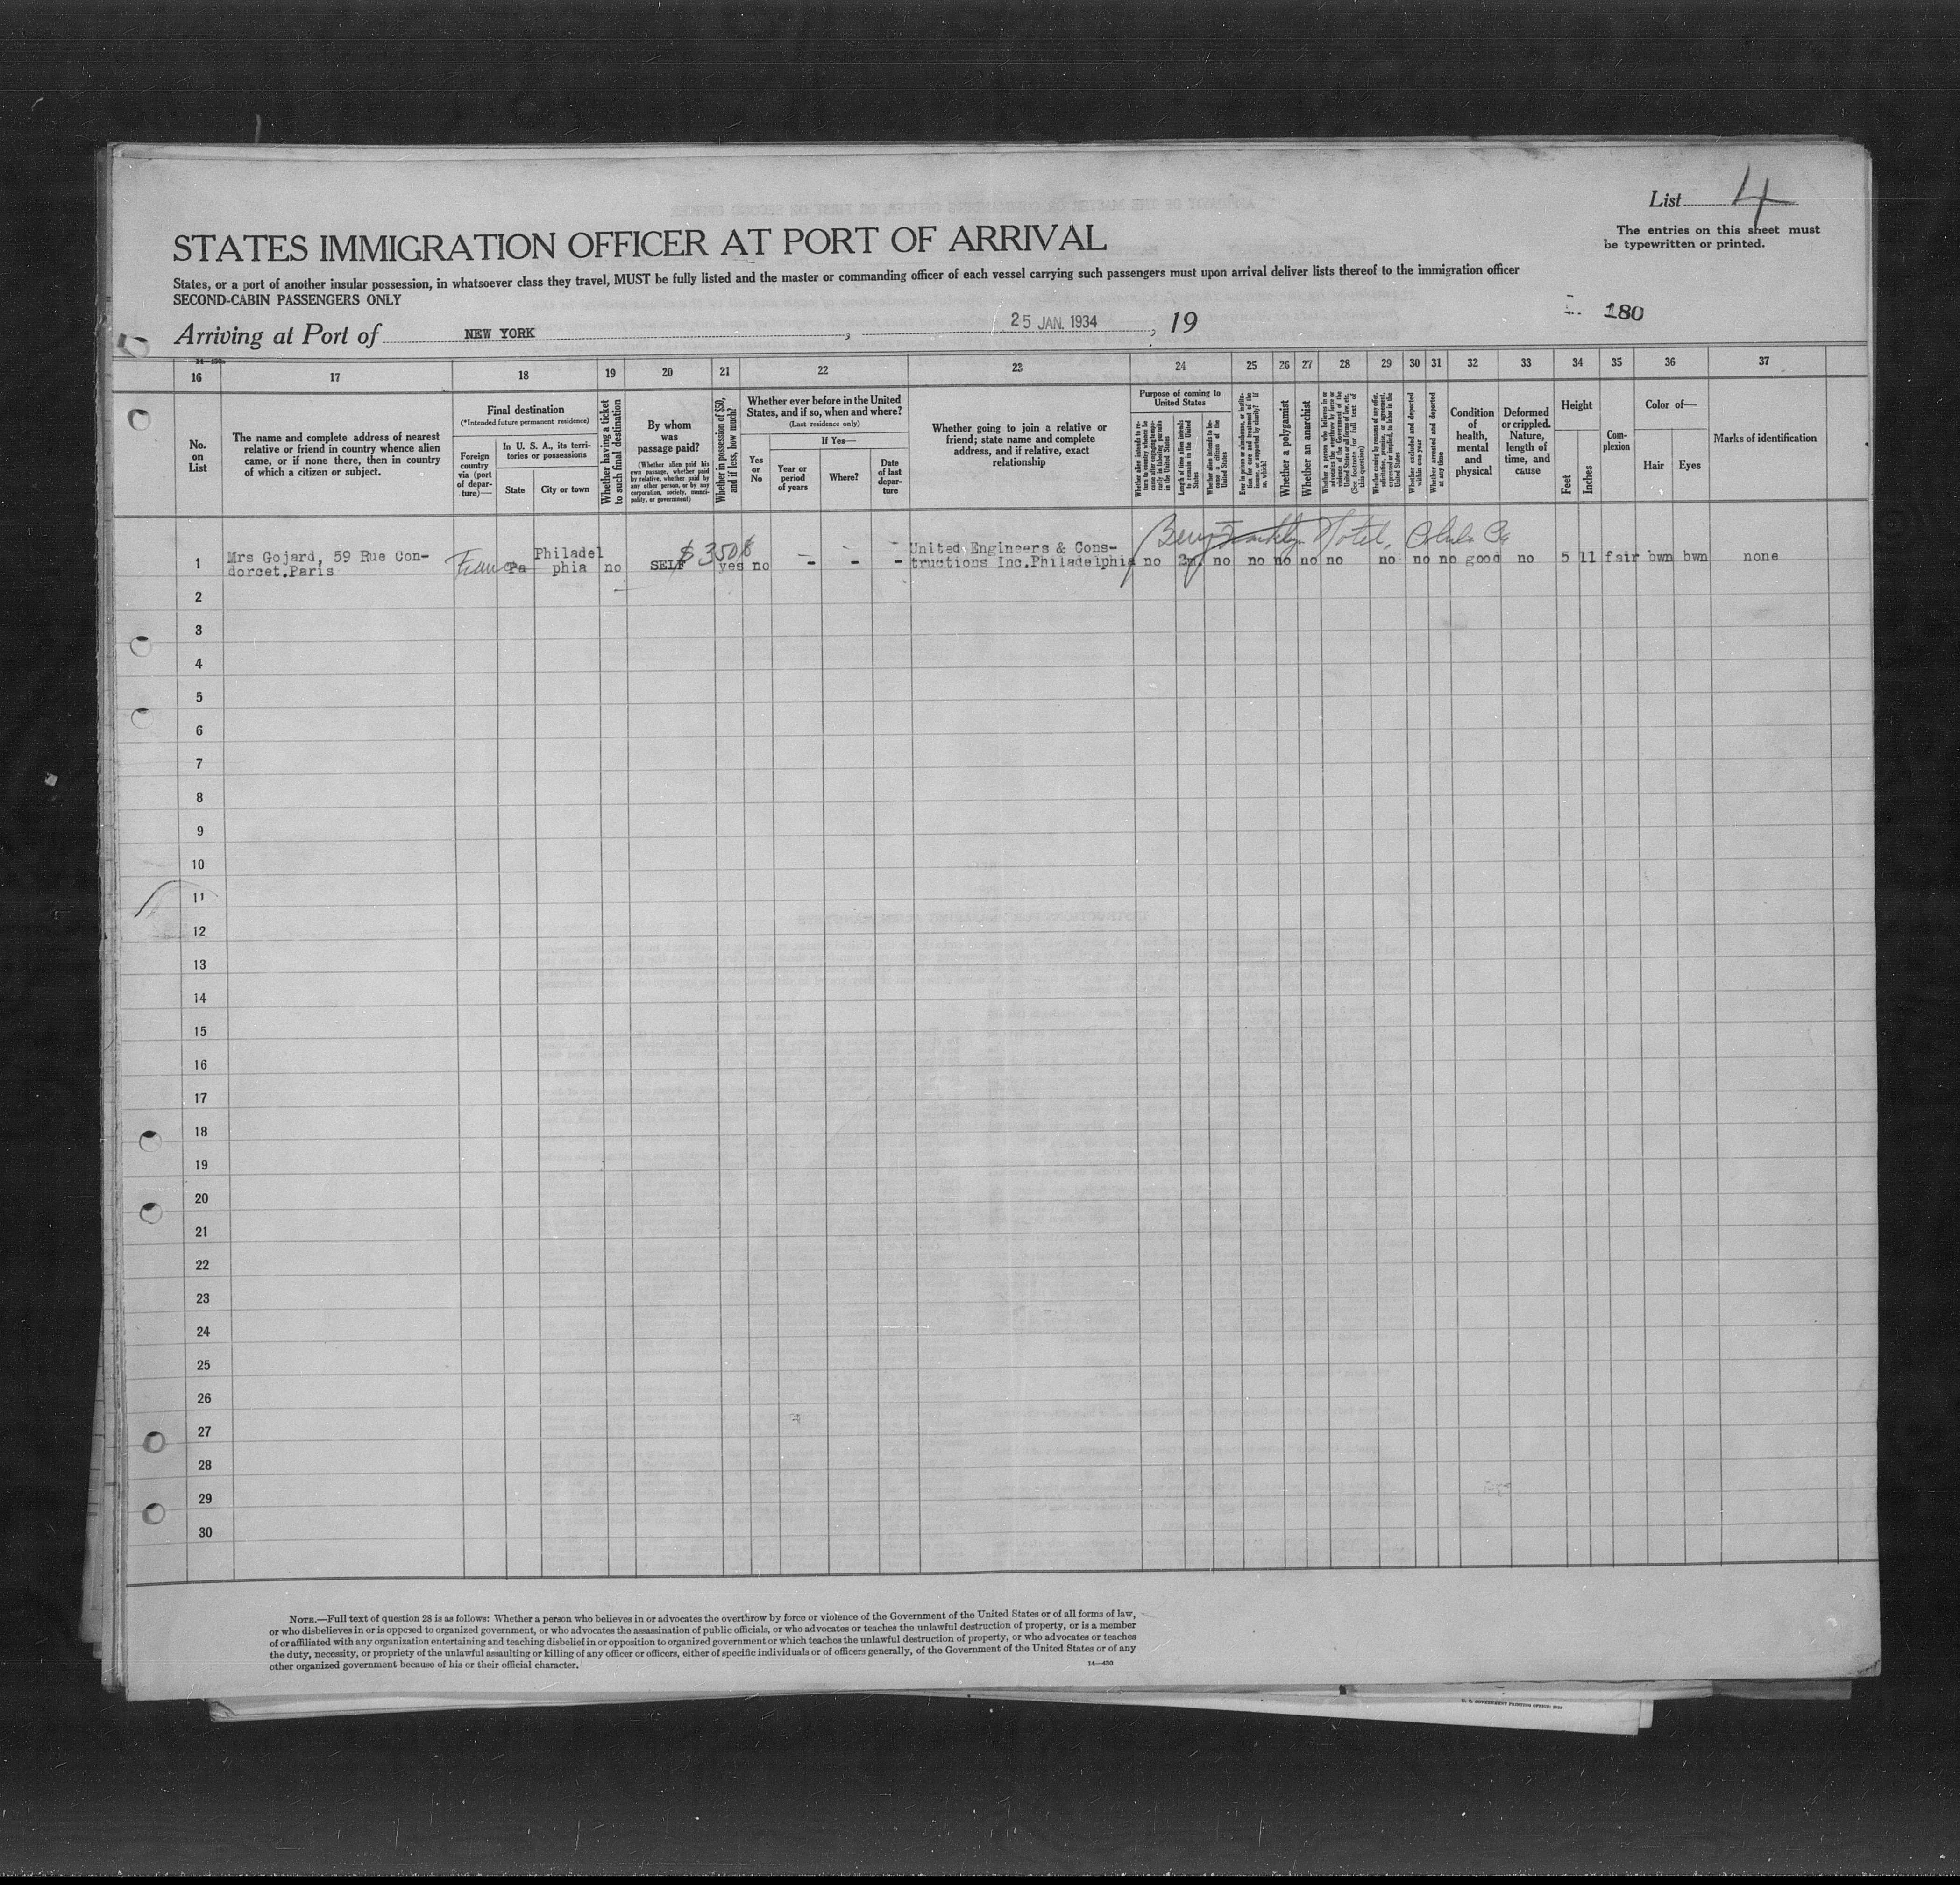 List 4
The entries on this sheet must
be typewritten or printed.
STATES IMMIGRATION OFFICER AT PORT OF ARRIVAL
States, or a port of another insular possession, in whatsoever class they travel, MUST be fully listed and the master or commanding officer of each vessel carrying such passengers must upon arrival deliver lists thereof to the immigration officer
SECOND-CABIN PASSENGERS ONLY
180
Arriving at Port of NEW YORK, 25 JAN. 1934, 19
14—430
16 17 18 19 20 21 22 23 24 25 26 27 28 29 30 31 32 33 34 35 36 37
No. on List
The name and complete address of nearest
relative or friend in country whence alien
came, or if none there, then in country
of which a citizen or subject.
Final destination
(*Intended future permanent residence)
Foreign
country
via (port
of depar-
ture)—
In U. S. A., its terri-
tories or possessions
State
City or town
Whether having a ticket
to such final destination
By whom
was
passage paid?
(Whether alien paid his
own passage, whether paid
by relative, whether paid by
any other person, or by any
corporation, society, munici-
pality, or government)
Whether in possession of $50,
and if less, how much?
Whether ever before in the United
States, and if so, when and where?
(Last residence only)
Yes
or
No
If Yes—
Year or
period
of years
Where?
Date
of last
depar-
ture
Whether going to join a relative or
friend; state name and complete
address, and if relative, exact
relationship
Purpose of coming to
United States
Whether alien intends to re-
turn to country whence he
came after engaging tempo-
rarily in laboring pursuits
in the United States
Length of time alien intends
to remain in the United
States
Whether alien intends to be-
come a citizen of the
United States
Ever in prison or almshouse, or institu-
tion for care and treatment of the
insane, or supported by charity? If
so, which?
Whether a polygamist
Whether an anarchist
Whether a person who believes in or
advocates the overthrow by force or
violence of the Government of the
United States or all forms of law, etc.
(See footnote for full text of
this question)
Whether coming by reason of any offer,
solicitation, promise, or agreement,
expressed or implied, to labor in the
United States
Whether excluded and deported
within one year
Whether arrested and deported
at any time
Condition
of
health,
mental
and
physical
Deformed
or crippled.
Nature,
length of
time, and
cause
Height
Feet
Inches
Com-
plexion
Color of—
Hair
Eyes
Marks of identification
Hotel,
1 Mrs Gojard, 59 Rue Con-
dorcet.Paris
France
Pa
Philadel
phia
no
SELF
$350
yes
no
-
-
-
United Engineers & Cons-
tructions Inc.Philadelphia
no 2m. no no no no no no no no good no 5 11 fair bwn bwn none
2
3
4
5
6
7
8
9
10
11
12
13
14
15
16
17
18
19
20
21
22
23
24
25
26
27
28
29
30
NOTE.—Full text of question 28 is as follows: Whether a person who believes in or advocates the overthrow by force or violence of the Government of the United States or of all forms of law,
or who disbelieves in or is opposed to organized government, or who advocates the assassination of public officials, or who advocates or teaches the unlawful destruction of property, or is a member
of or affiliated with any organization entertaining and teaching disbelief in or opposition to organized government or which teaches the unlawful destruction of property, or who advocates or teaches
the duty, necessity, or propriety of the unlawful assaulting or killing of any officer or officers, either of specific individuals or of officers generally, of the Government of the United States or of any
other organized government because of his or their official character.
14—430